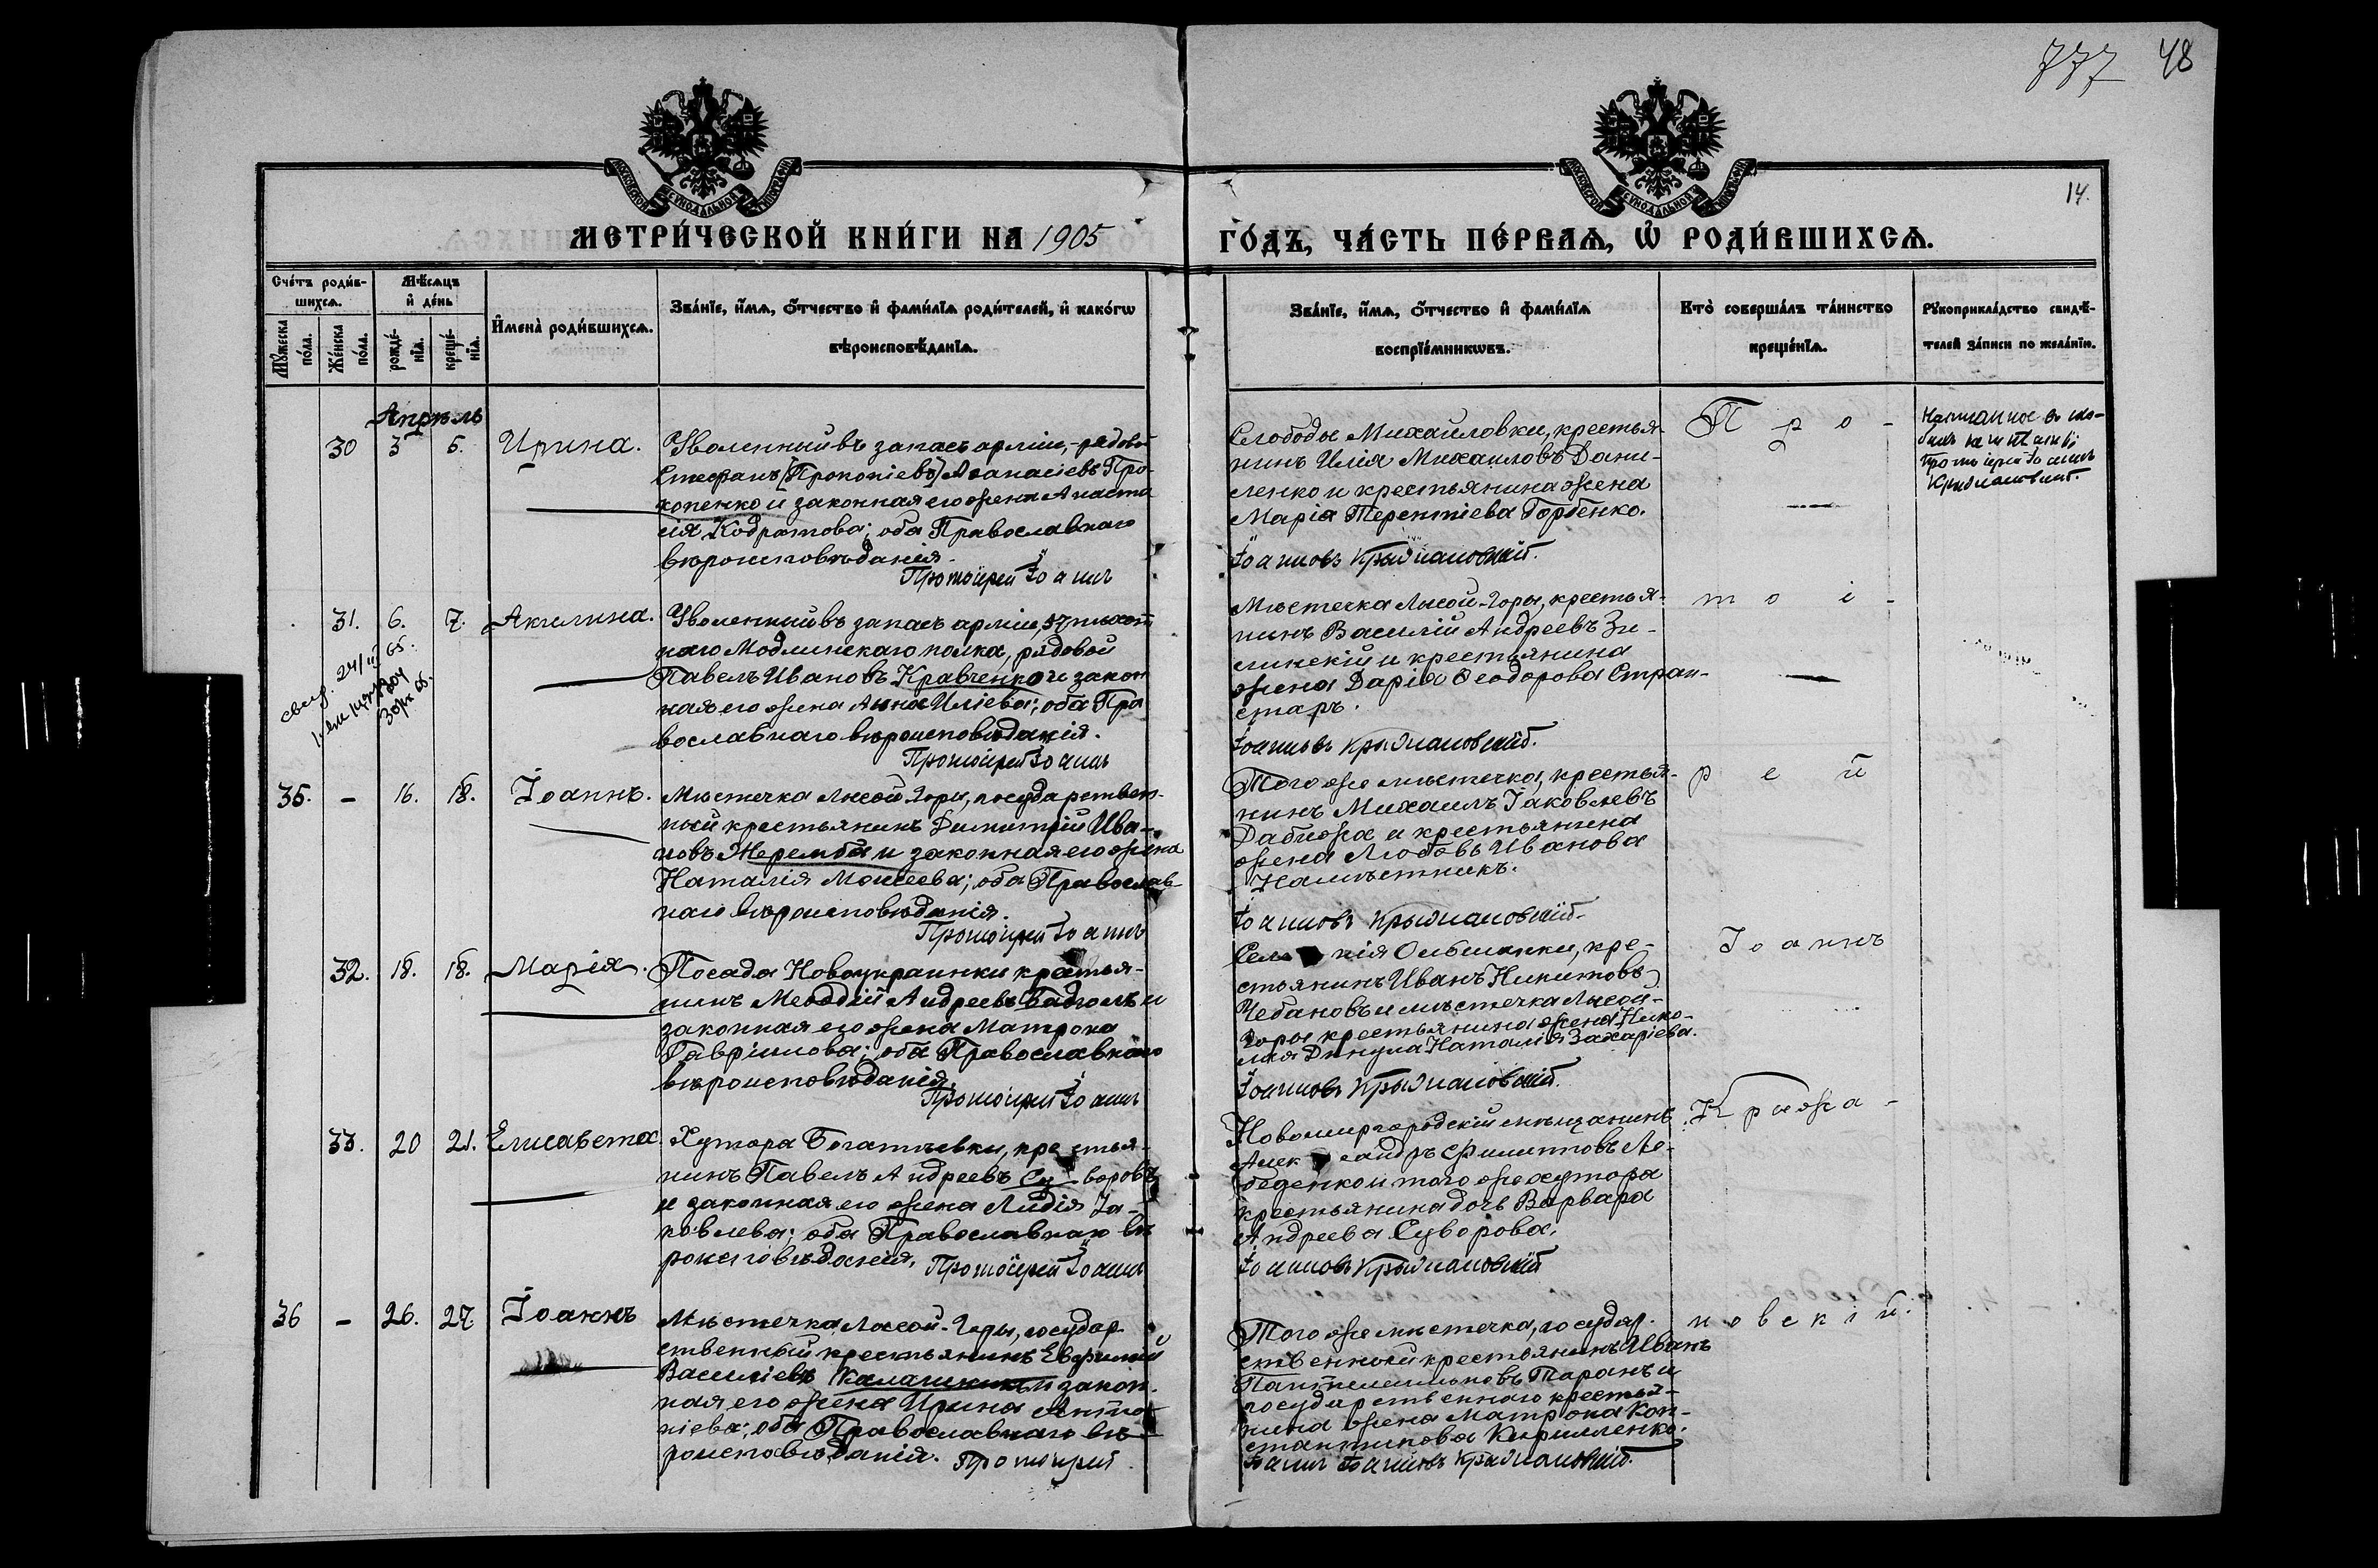 777 48
14.
МОСКОВСКОЙ СУНОДАЛЬНОЙ ТИПОГРАФІИ
МОСКОВСКОЙ СУНОДАЛЬНОЙ ТИПОГРАФІИ
МЕТРИ́ЧЕСКОЙ КНИ́ГИ НА 1905
ГО́ДЪ, ЧА́СТЬ ПЕ́РВАѦ, Ѡ҆ РОДИ́ВШИХСѦ.
Сче́тъ роди́в-
шихсѧ.
Мꙋ́жеска по́ла.
Же́нска по́ла.
Мѣ́сѧцъ
и҆ де́нь
рожде́-
нїѧ.
креще́-
нїѧ.
И҆мена̀ роди́вшихсѧ.
Зва́нїе, и҆́мѧ, ѻ҆́тчество и҆ фами́лїѧ роди́телей, и҆ како́гѡ
вѣроисповѣ́данїѧ.
Зва́нїе, и҆́мѧ, ѻ҆́тчество и҆ фами́лїѧ
воспрїе́мникѡвъ.
Кто̀ соверша́лъ та́инство
креще́нїѧ.
Рꙋкоприкла́дство свидѣ́-
телей за́писи по жела́нїю.
Апрѣль
30 3 5. Ирина.
Уволенный въ запасъ арміи, рядовой
Стефанъ [Прокопіевъ] Аѳанасіевъ Про-
копенко и законная его жена Анаста
сія Кодратова; оба Православнаго
вѣроисповѣданія.
Протоіерей Іоаннъ
Слободы Михайловки, крестья-
нинъ Илія Михаиловъ Дани-
ленко и крестьянина жена
Марія Терентіева Горбенко.
Іоанновъ Крыжановскій.
П р о -
Написанное въ ско-
бкахъ не читать
Протоіерей Іоаннъ
Крыжановскій.
31. 6. 7. Акилина.
Уволенный въ запасъ арміи, 57 пѣхот
наго Модлинскаго полка, рядовой
Павелъ Ивановъ Кравченко и закон
ная его жена Анна Иліева; оба Пра
вославнаго вѣроисповѣданія.
Протоіерей Іоаннъ
Мѣстечка Лысой-Горы, крестья-
нинъ Василій Андреевъ Зи-
линскій и крестьянина
жена Дарія Ѳеодорова Стран-
старъ.
Іоанновъ Крыжановскій.
т о і -
35. – 16. 18. Іоаннъ.
Мѣстечка Лысой Горы, государствен-
ный крестьянинъ Димитрій Ива-
новъ Жеремба и законная его жена
Наталія Моисеева; оба Православ-
наго вѣроисповѣданія.
Протоіерей Іоаннъ
Того же мѣстечка, крестья-
нинъ Михаилъ Іаковлевъ
Дабижа и крестьянина
жена Любовь Иванова
Намѣстникъ.
Іоанновъ Крыжановскій.
р е й
32. 18. 18. Марія.
Посада Новоукраинки крестья-
нинъ Меѳодій Андреевъ Бадюлъ и
законная его жена Матрона
Гавріилова; оба Православнаго
вѣроисповѣданія.
Протоіерей Іоаннъ
Селенія Ольшанки, кре-
стьянинъ Иванъ Никитовъ
Чебановъ и мѣстечка Лысой-
Горы крестьянина жена Нико-
лая Дикула Наталія Захаріева.
Іоанновъ Крыжановскій.
Іоаннъ
33. 20 21. Елисавета.
Хутора Богатыевки, крестья-
нинъ Павелъ Андреевъ Суворовъ
и законная его жена Лидія Іа-
ковлева; оба Православнаго вѣ
роисповѣданія. Протоіерей Іоаннъ
Новомиргородскій мѣщанинъ
Александръ Филиповъ Ле-
беденко и того же хутора
крестьянина дочь Варвара
Андреева Суворова.
Іоанновъ Крыжановскій
Крыжа-
36 – 26. 27. Іоаннъ
Мѣстечка Лысой-Горы, государ
ственный крестьянинъ Евфимій
Василіевъ Калашникъ и закон.
ная его жена Ирина Анто
ніева; оба Православнаго вѣ-
роисповѣданія. Протоіерей
Того же мѣстечка, государ.
ственный крестьянинъ Иванъ
Пантелеимоновъ Таранъ и
государственнаго крестья-
нина жена Матрона Кон-
стантинова Кирилленко.
Іоаннъ Іоанновъ Крыжановскій.
новскій.